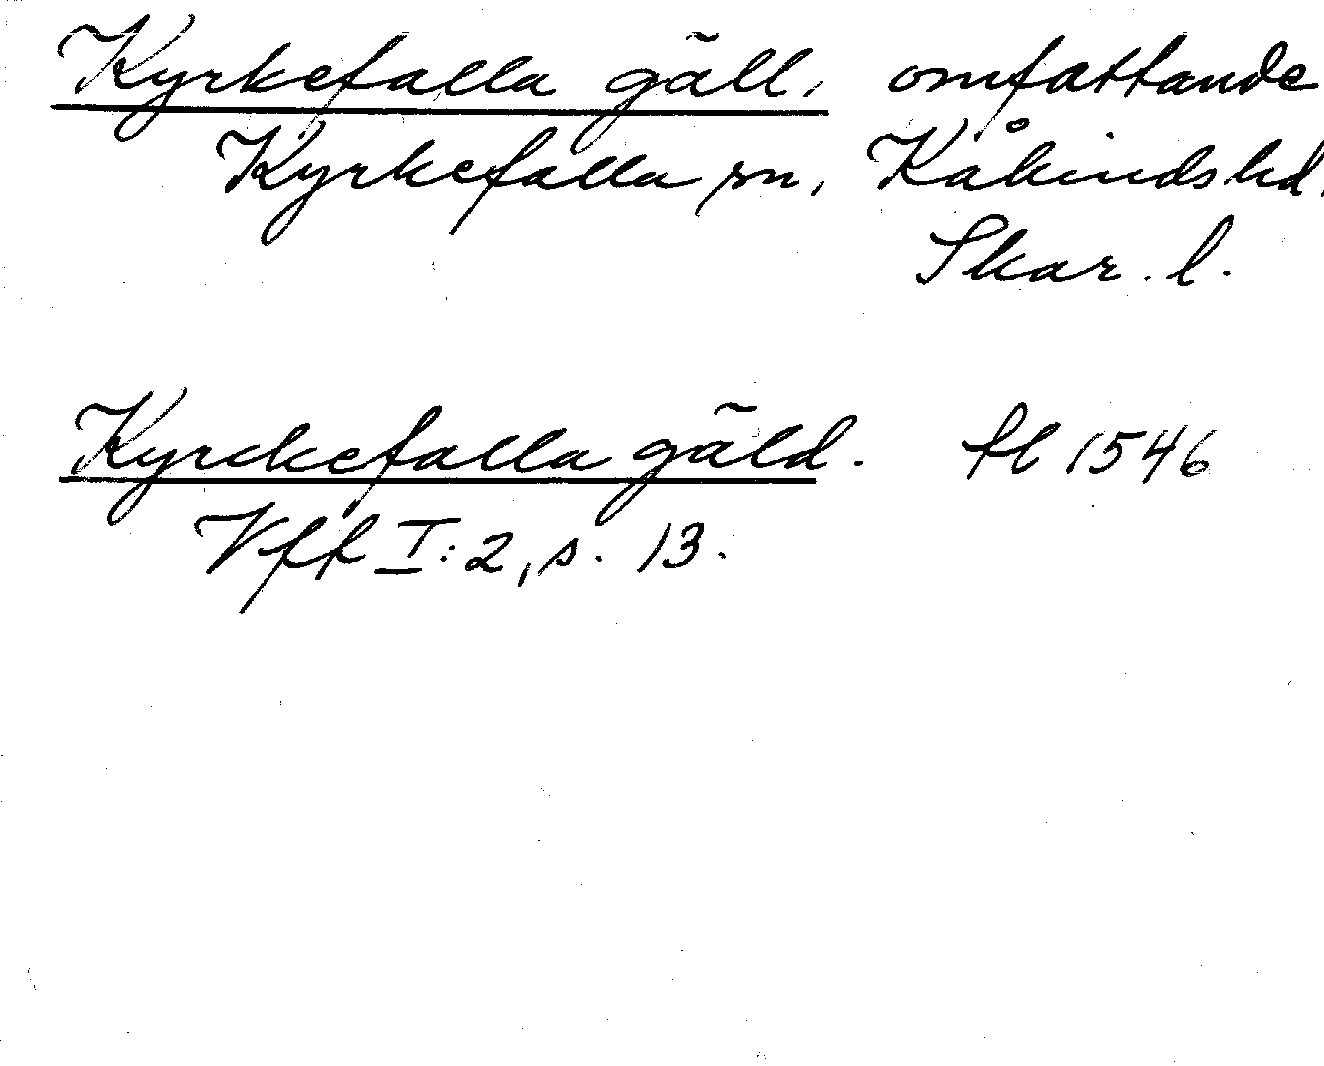 Kyrkefalla gäll, omfattande
Kyrkefalla sn, Kåkinds hd.
Skar. l.
Kyrckefalla gäld. fl 1546
Vff I:2, s. 13.